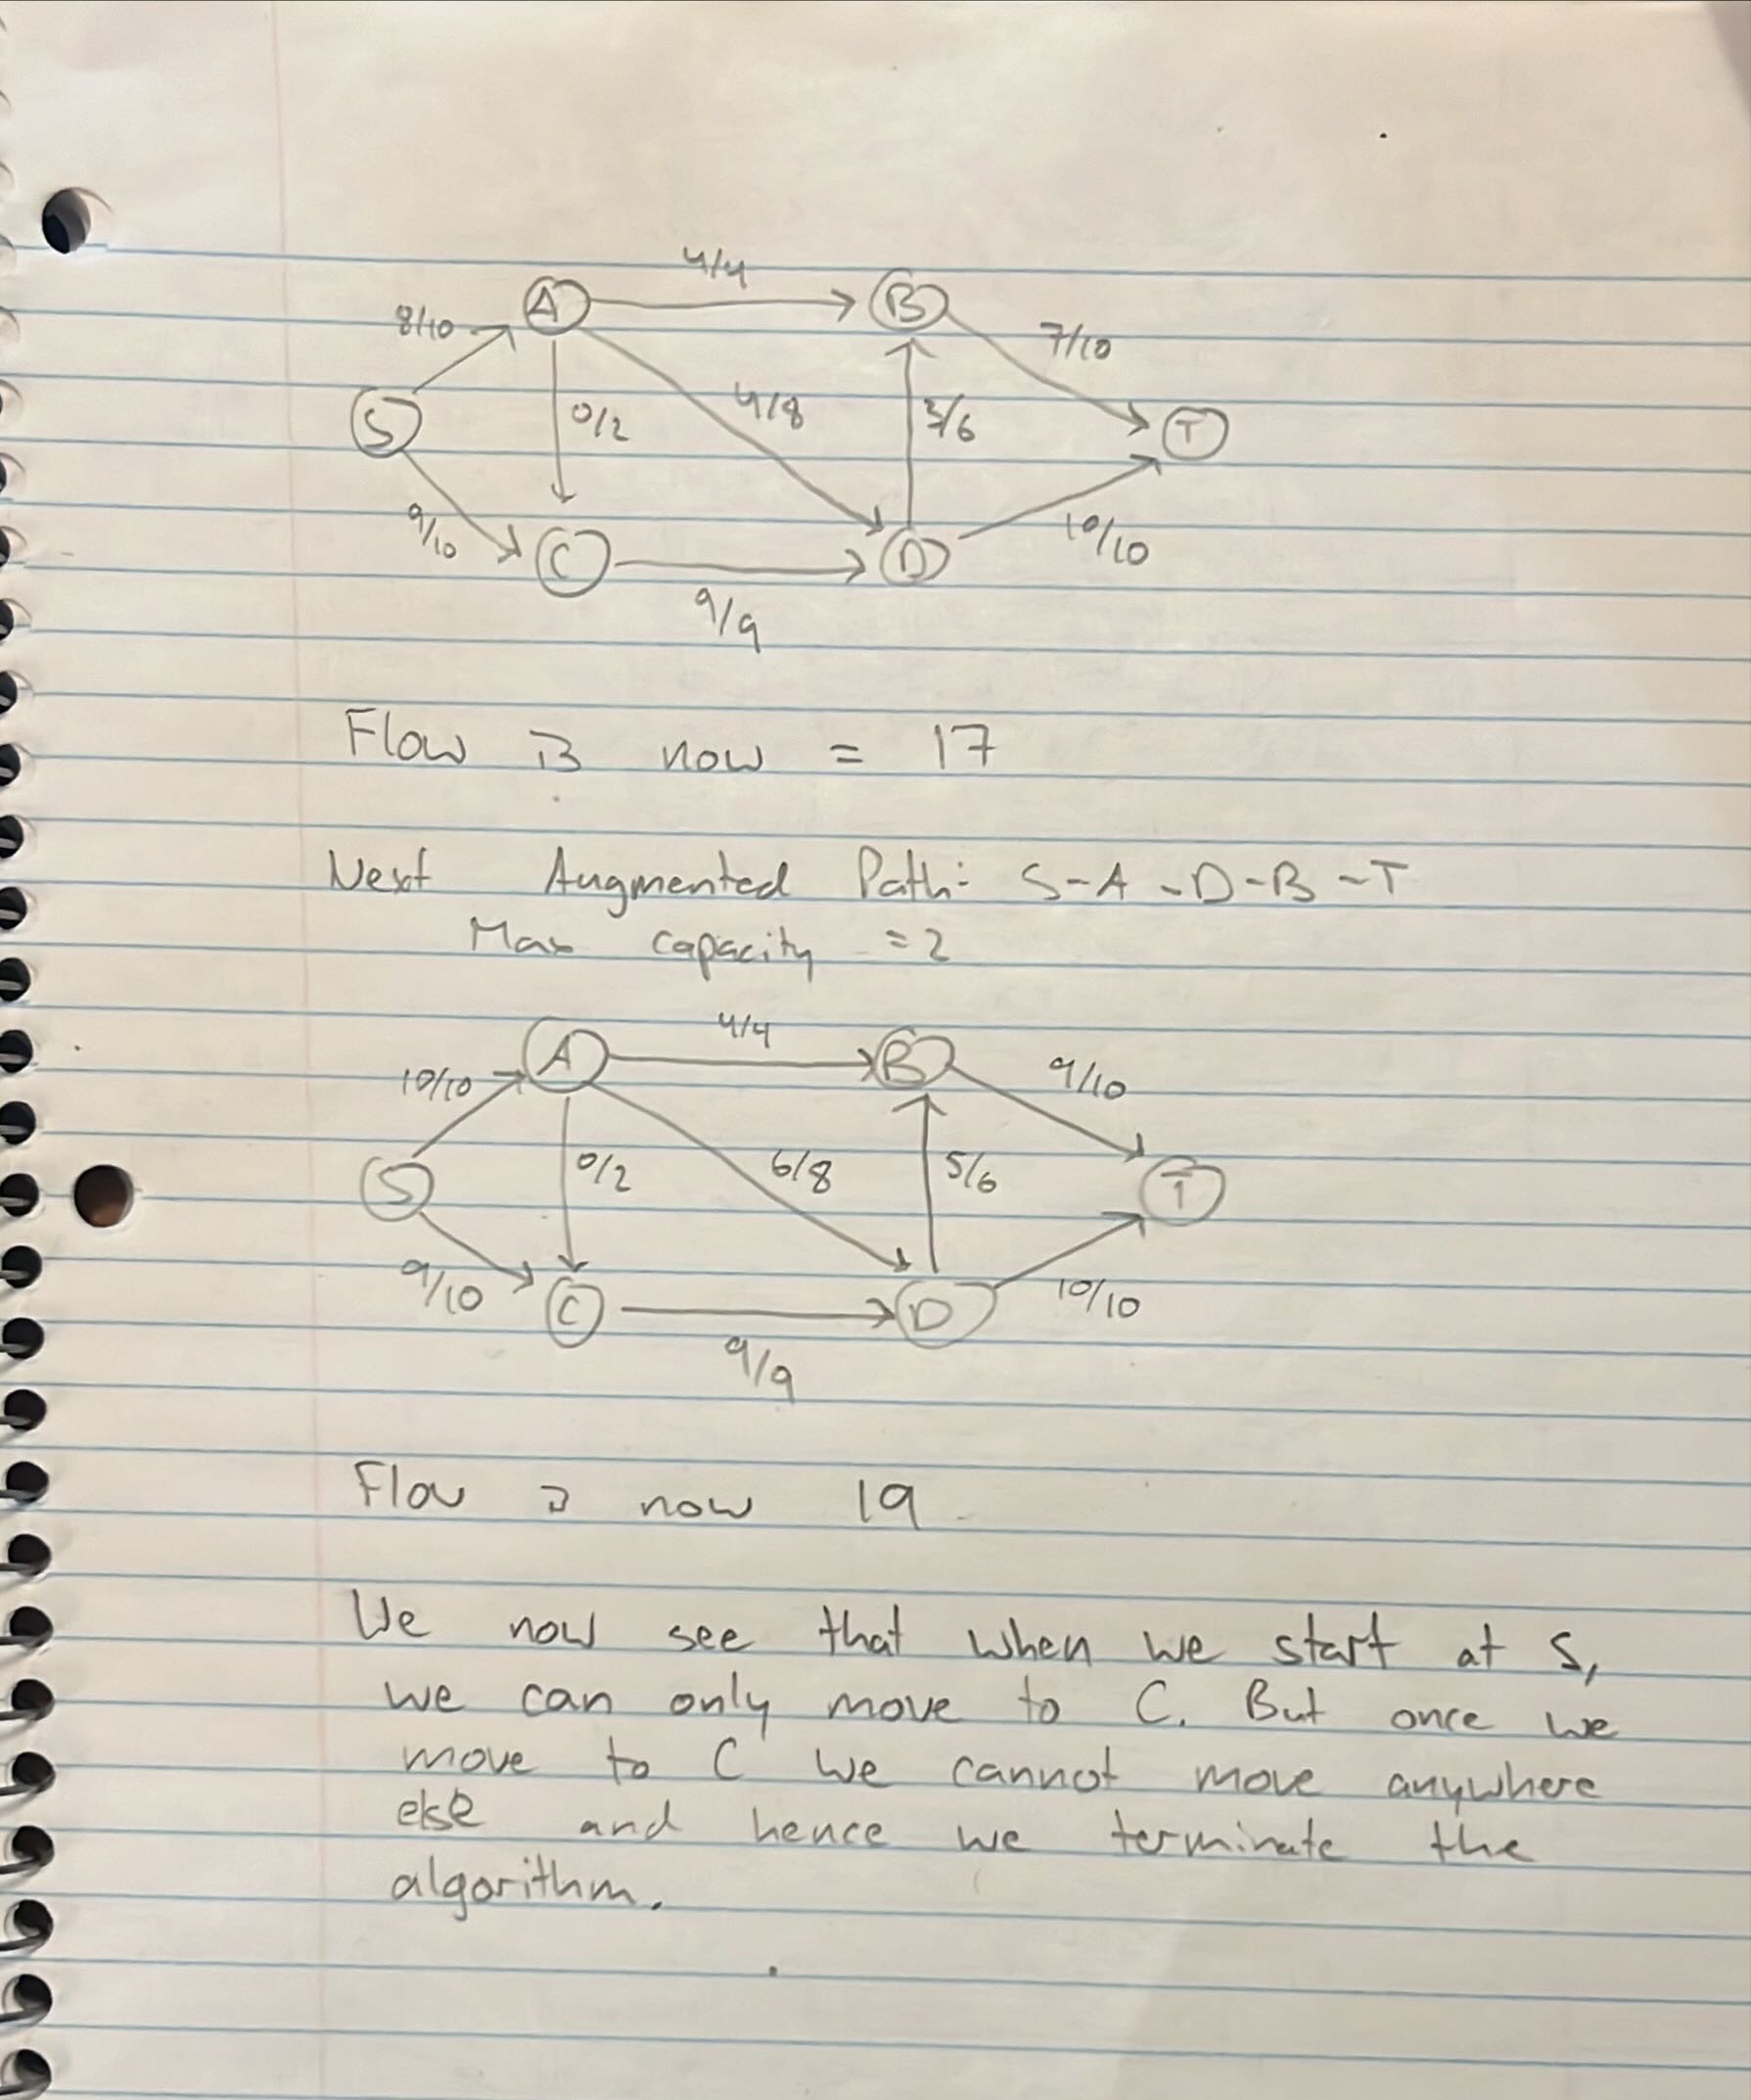 4/4
A
B
8/10
7/10
S
0/2
4/8
3/6
T
9/10
C
D
10/10
9/9
Flow is now = 17
Next Augmented Path: S-A-D-B-T
Max capacity = 2
4/4
A
B
10/10
9/10
S
0/2
6/8
5/6
T
9/10
C
D
10/10
9/9
Flow is now 19
We now see that when we start at S,
we can only move to C. But once we
move to C we cannot move anywhere
else and hence we terminate the
algorithm.